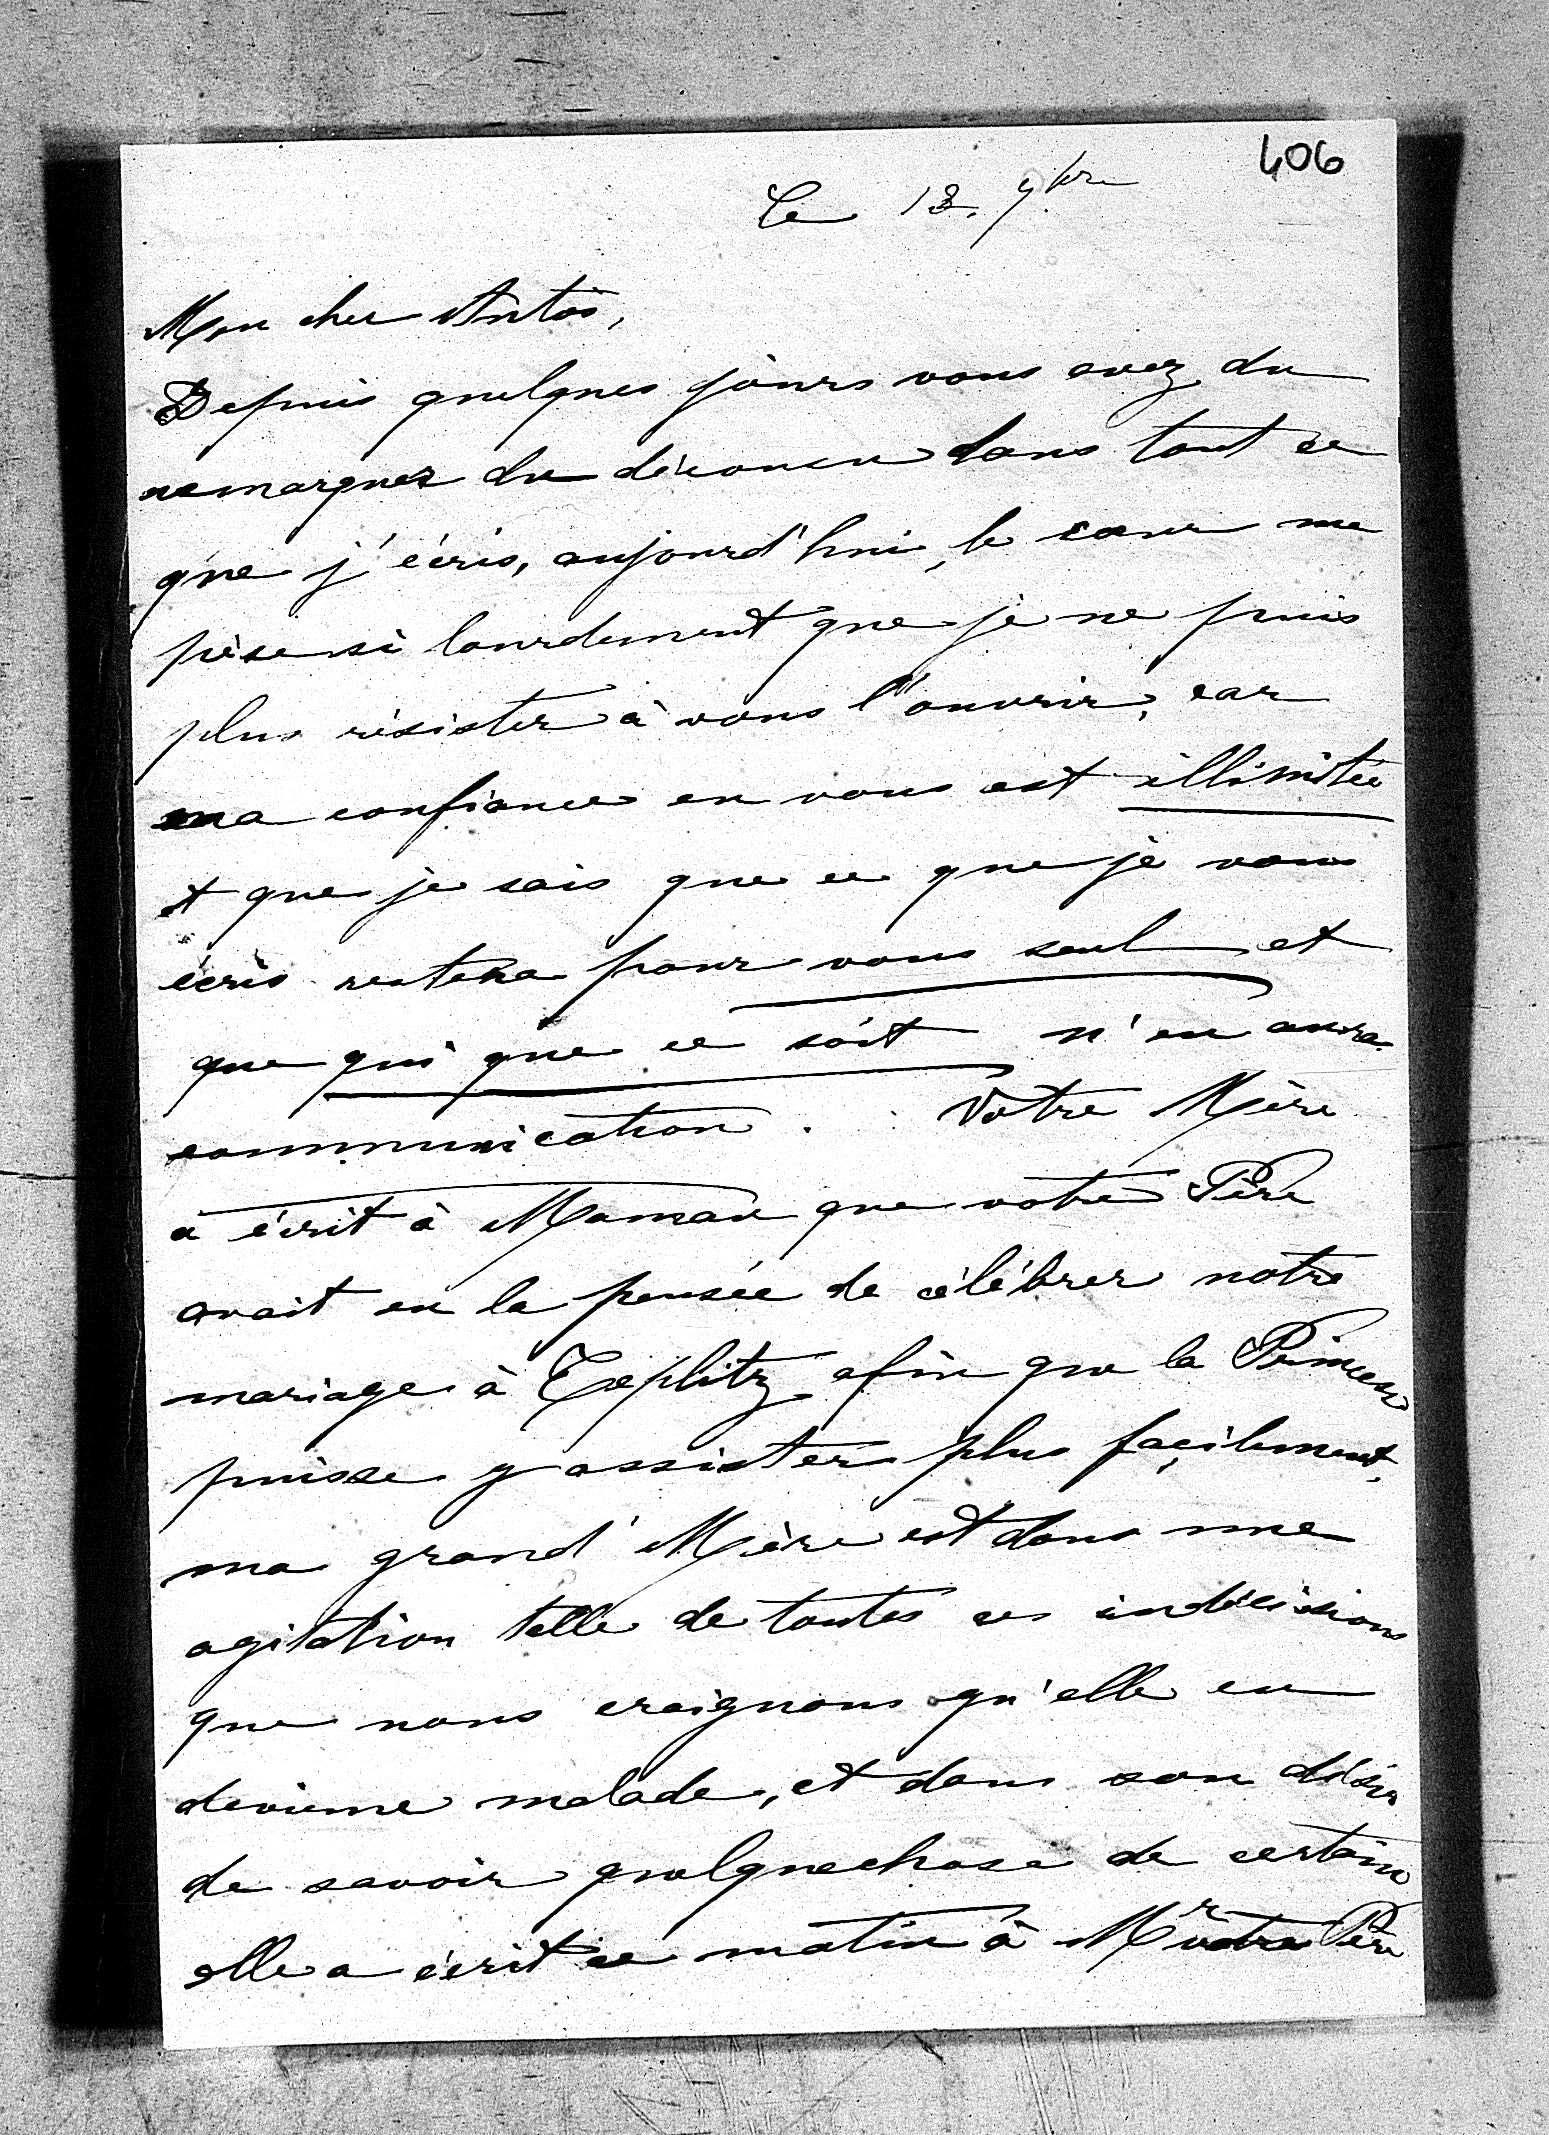 406
Ce 18. 9bre
Mon cher Antos,
Depuis quelques jours vous avez du
remarquer du décousu dans tout ce
que j'écris, aujourd'hui, le cœur me
pèse si lourdement que je ne puis
plus résister à vous l'ouvrir, car
ma confiance en vous est illimitée
et que je sais que ce que je vous
écris restera pour vous seul et
que qui que ce soit n'en aura
communication. Votre Mère
a écrit à Maman que votre Père
avait eu la pensée de célébrer notre
mariage à Toeplitz afin que la Princesse
puisse y assister plus façilement,
ma grand'Mère est dans une
agitation telle de toutes ces indécisions
que nous craignons qu'elle en
devienne malade, et dans son désir
de savoir quelquechose de certain
elle a écrit ce matin à Mr votre Père